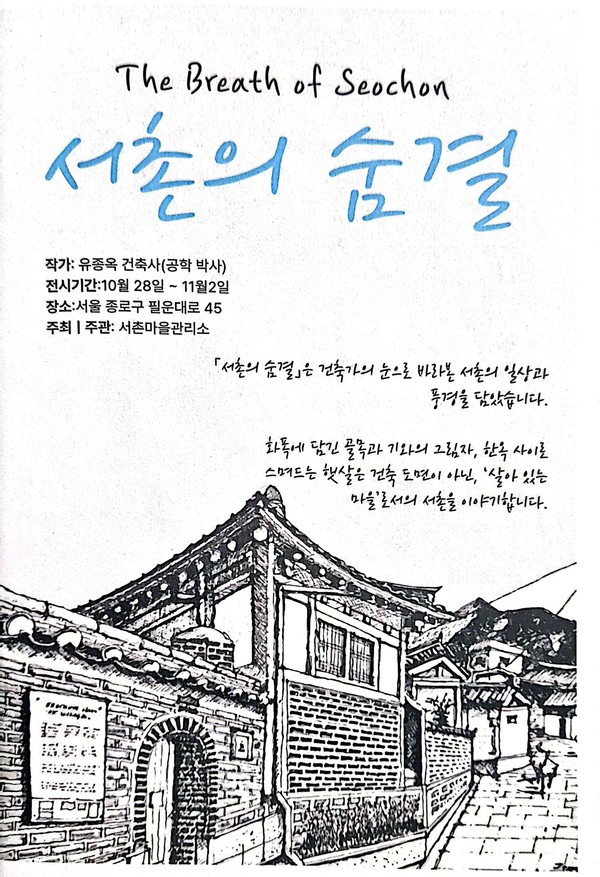 The Breath of Seochon
서촌의 숨결
작가: 유종옥 건축사(공학 박사)
전시기간:10월 28일 ~ 11월2일
장소:서울 종로구 필운대로 45
주최 | 주관: 서촌마을관리소
「서촌의 숨결」은 건축가의 눈으로 바라본 서촌의 일상과
풍경을 담았습니다.
화폭에 담긴 골목과 기와의 그림자, 한옥 사이로
스며드는 햇살은 건축 도면이 아닌, '살아 있는
마을'로서의 서촌을 이야기합니다.